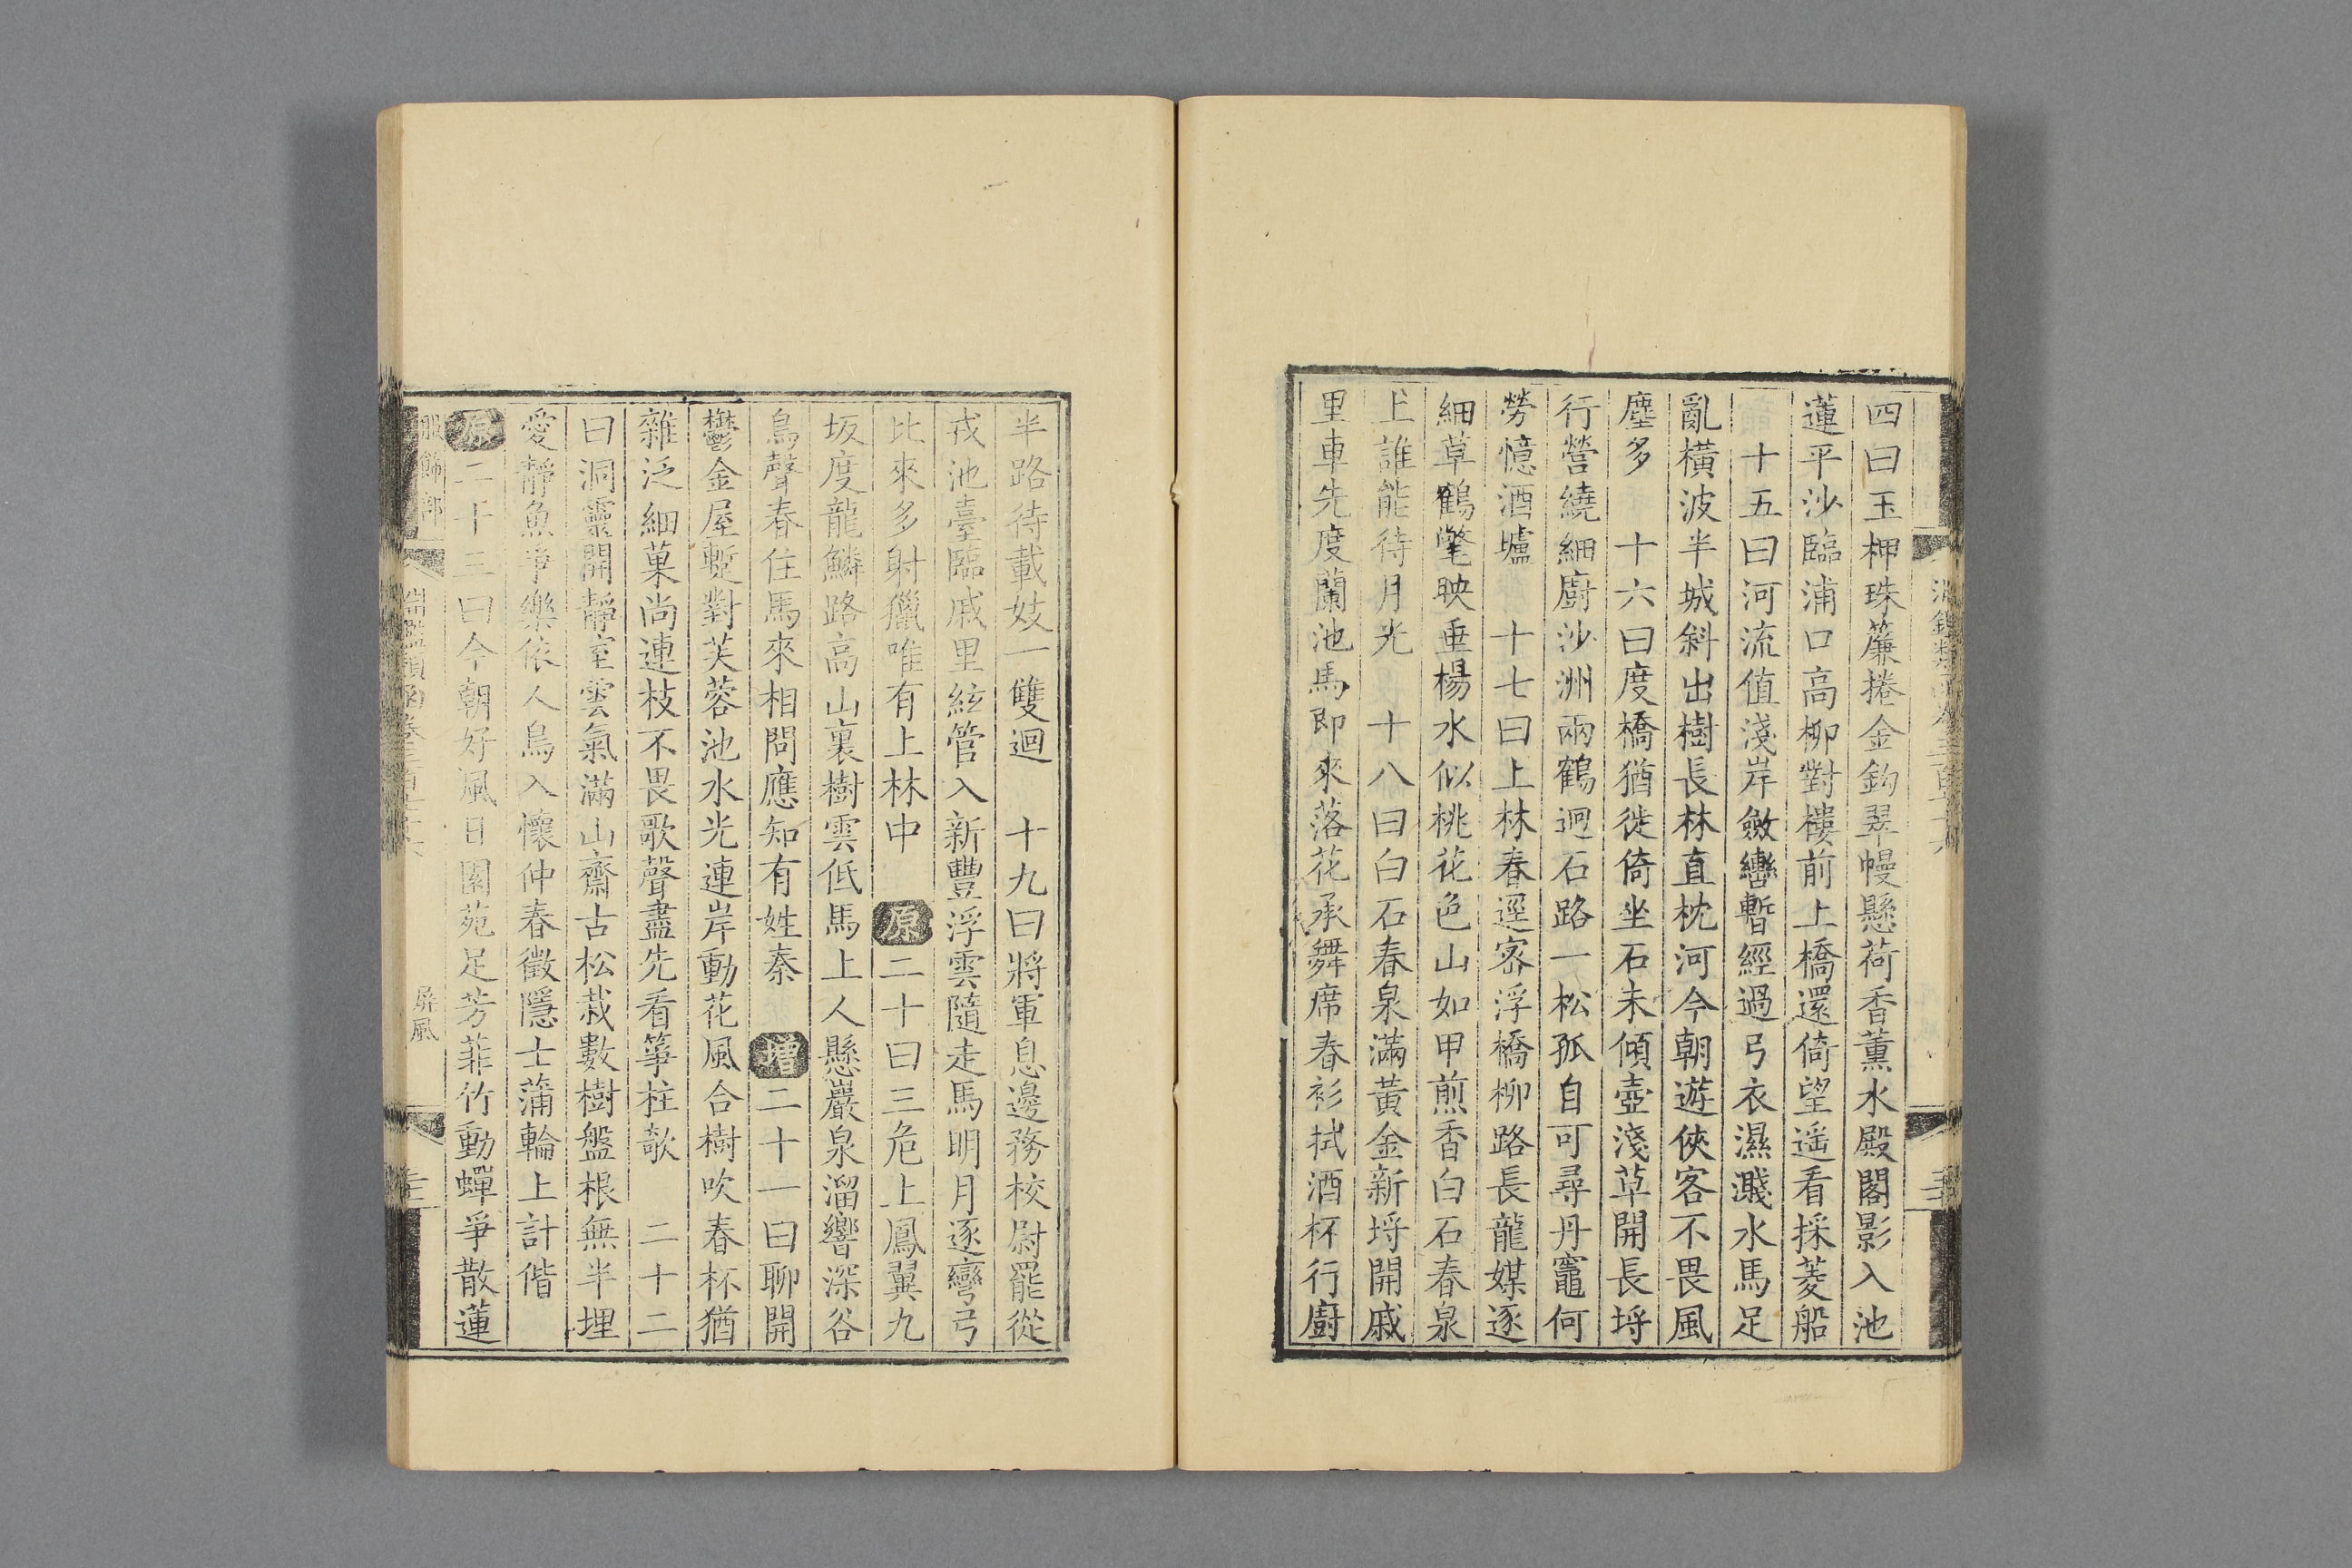 四曰玉柙珠簾捲金鈎翠幔懸荷香薰水殿閣影入池
蓮平沙臨浦口高柳對樓前上橋還倚望遥看採菱船
十五曰河流值淺岸斂轡暫經過弓衣濕濺水馬足
亂橫波半城斜出樹長林直枕河今朝遊俠客不畏風
塵多　十六曰度橋猶徙倚坐石未傾壺淺草開長埒
行營繞細廚沙洲兩鶴迥石路一松孤自可尋丹竈何
勞憶酒壚　十七曰上林春逕密浮橋柳路長龍媒逐
細草鶴氅映垂楊水似桃花色山如甲煎香白石春泉
上誰能待月光　十八曰白石春泉滿黃金新埒開戚
里車先度蘭池馬即來落花承舞席春衫拭酒杯行廚
半路待載妓一雙迴　十九曰將軍息邊務校尉罷從
戎池臺臨戚里絃管入新豐浮雲隨走馬明月逐彎弓
比來多射獵唯有上林中　原二十曰三危上鳳翼九
坂度龍鱗路高山裏樹雲低馬上人懸巖泉溜響深谷
鳥聲春住馬來相問應知有姓秦　增二十一曰聊開
鬱金屋暫對芙蓉池水光連岸動花風合樹吹春杯猶
雜泛細菓尚連枝不畏歌聲盡先看箏柱欹　二十二
曰洞靈開靜室雲氣滿山齋古松栽數樹盤根無半埋
愛靜魚爭樂依人鳥入懷仲春徵隱士蒲輪上計偕
原二十三曰今朝好風日園苑足芳菲竹動蟬爭散蓮
服飾部
淵鑑類函卷三百七十六
屏風